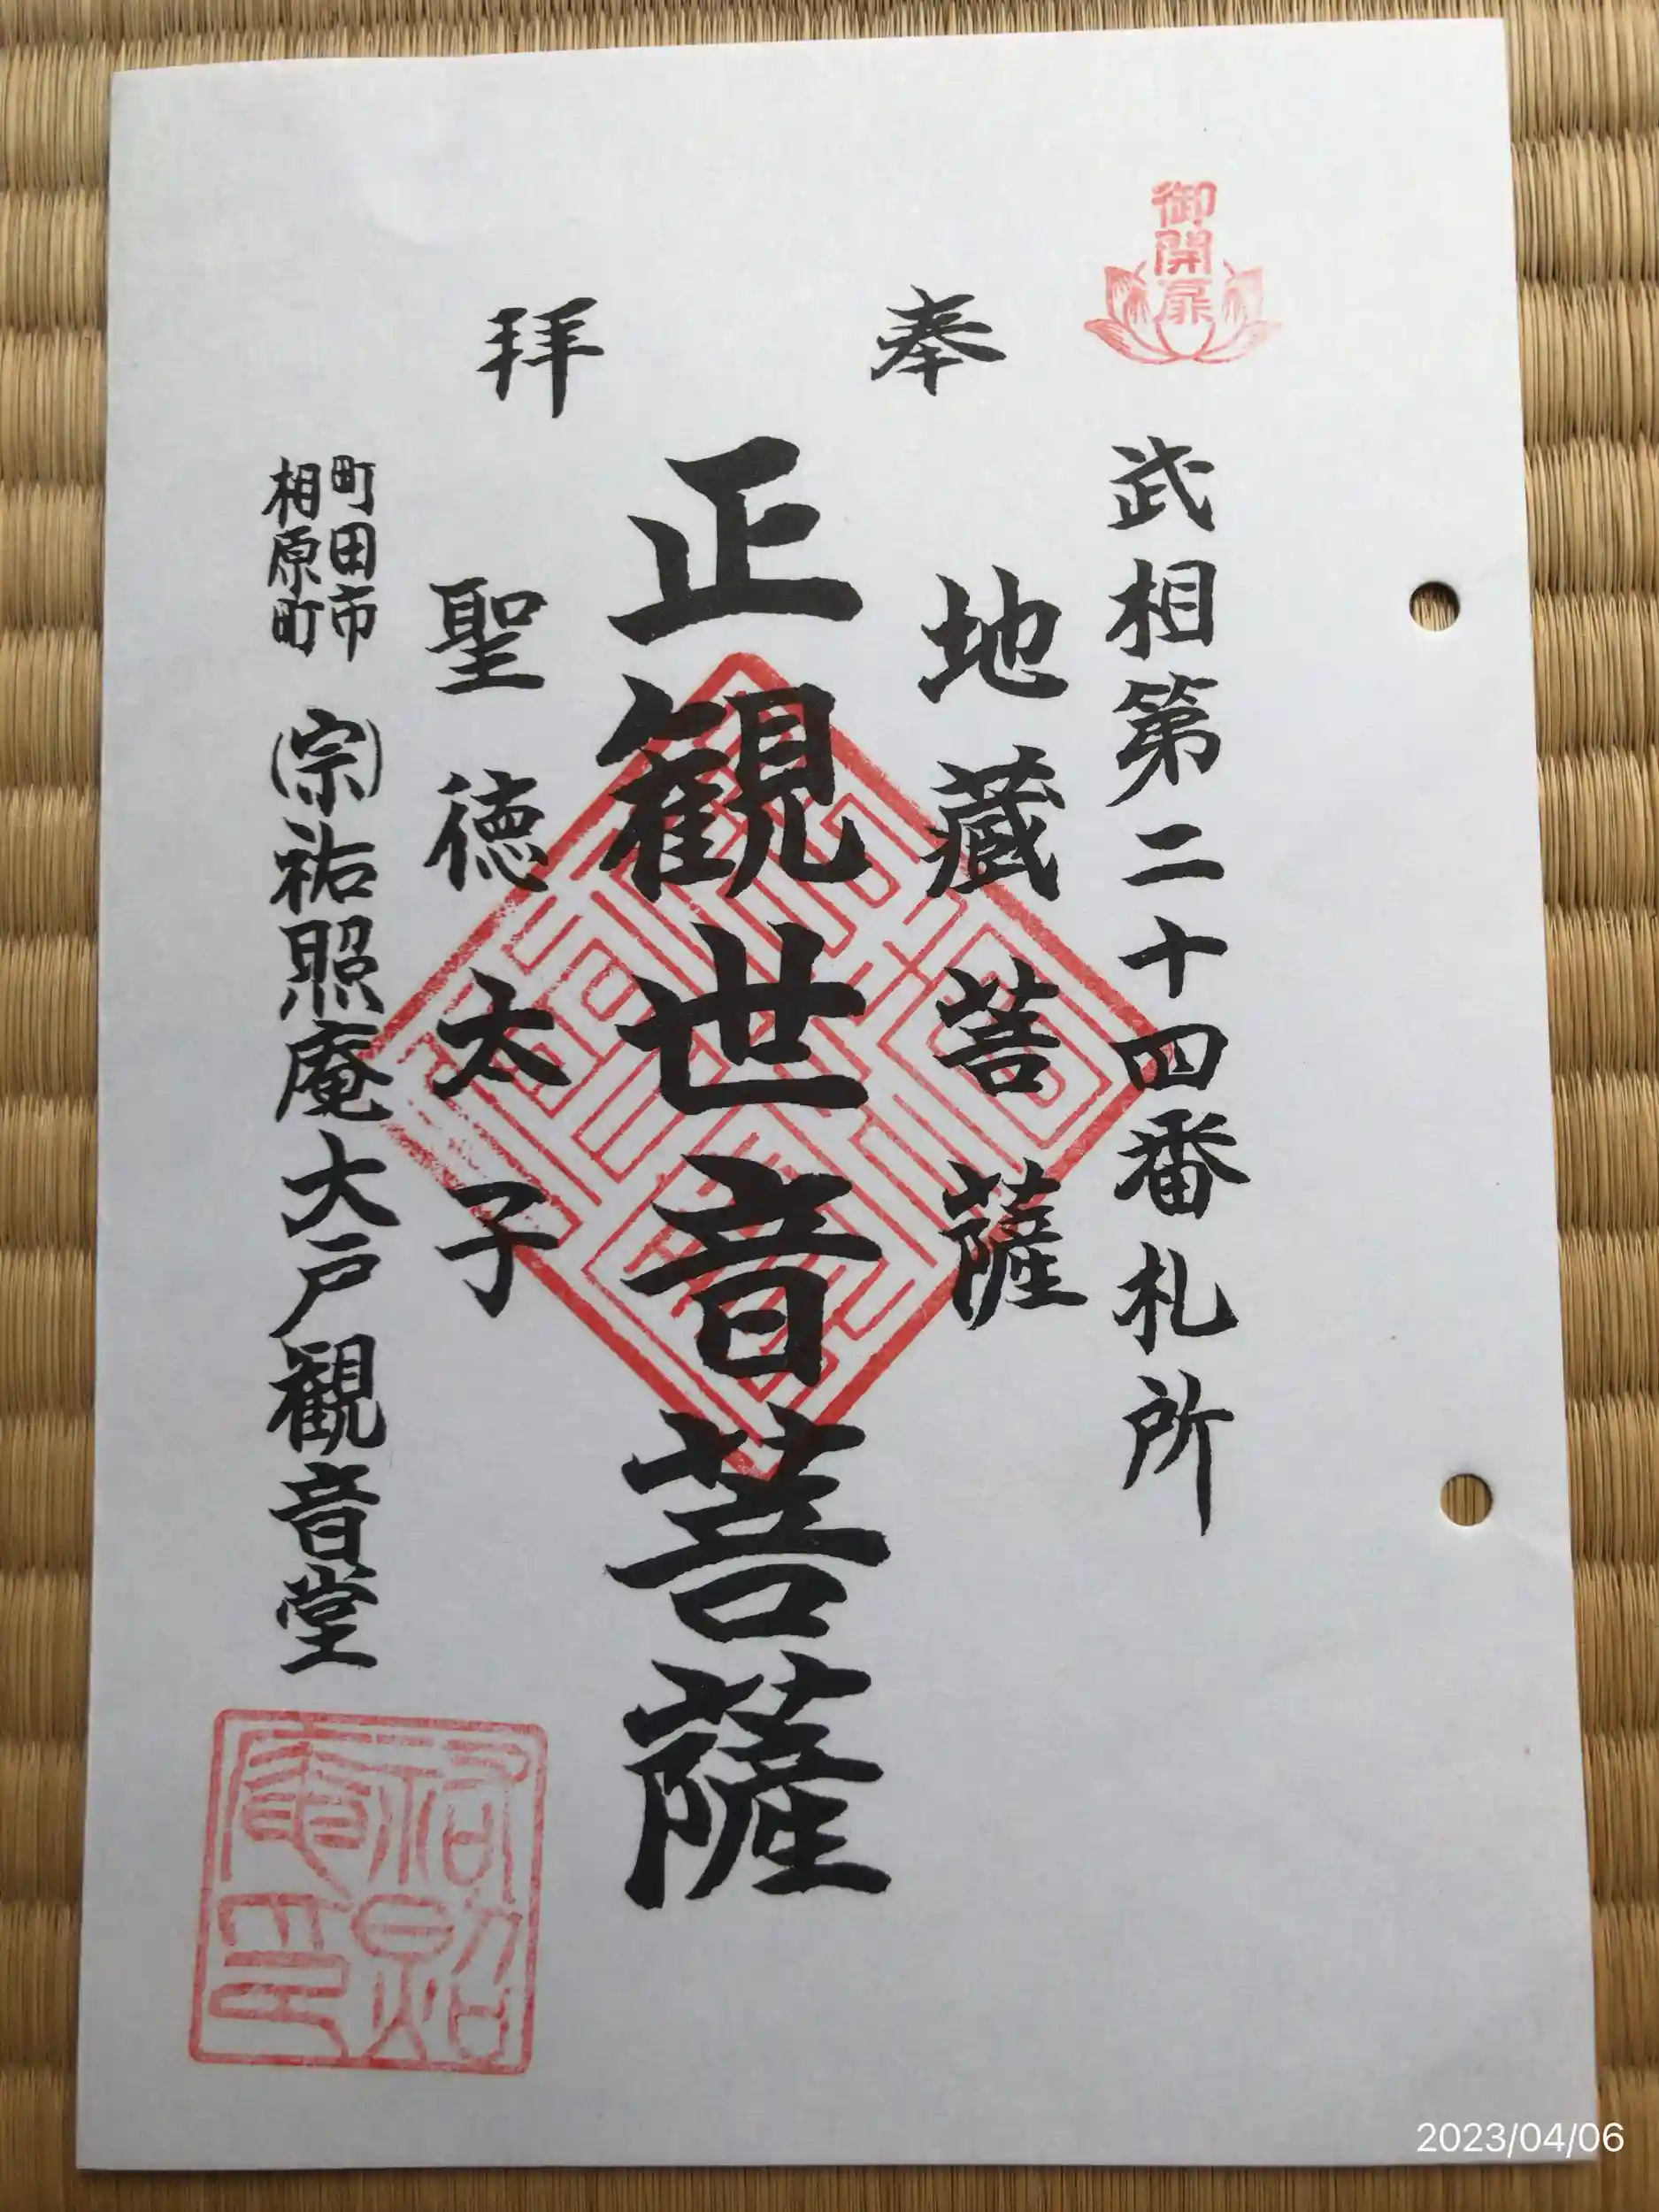 御開扉
武相第二十四番札所
奉
地蔵菩薩
正観世音菩薩
拝
聖徳太子
町田市
相原町
(宗)祐照庵大戸観音堂
祐照
庵印
2023/04/06